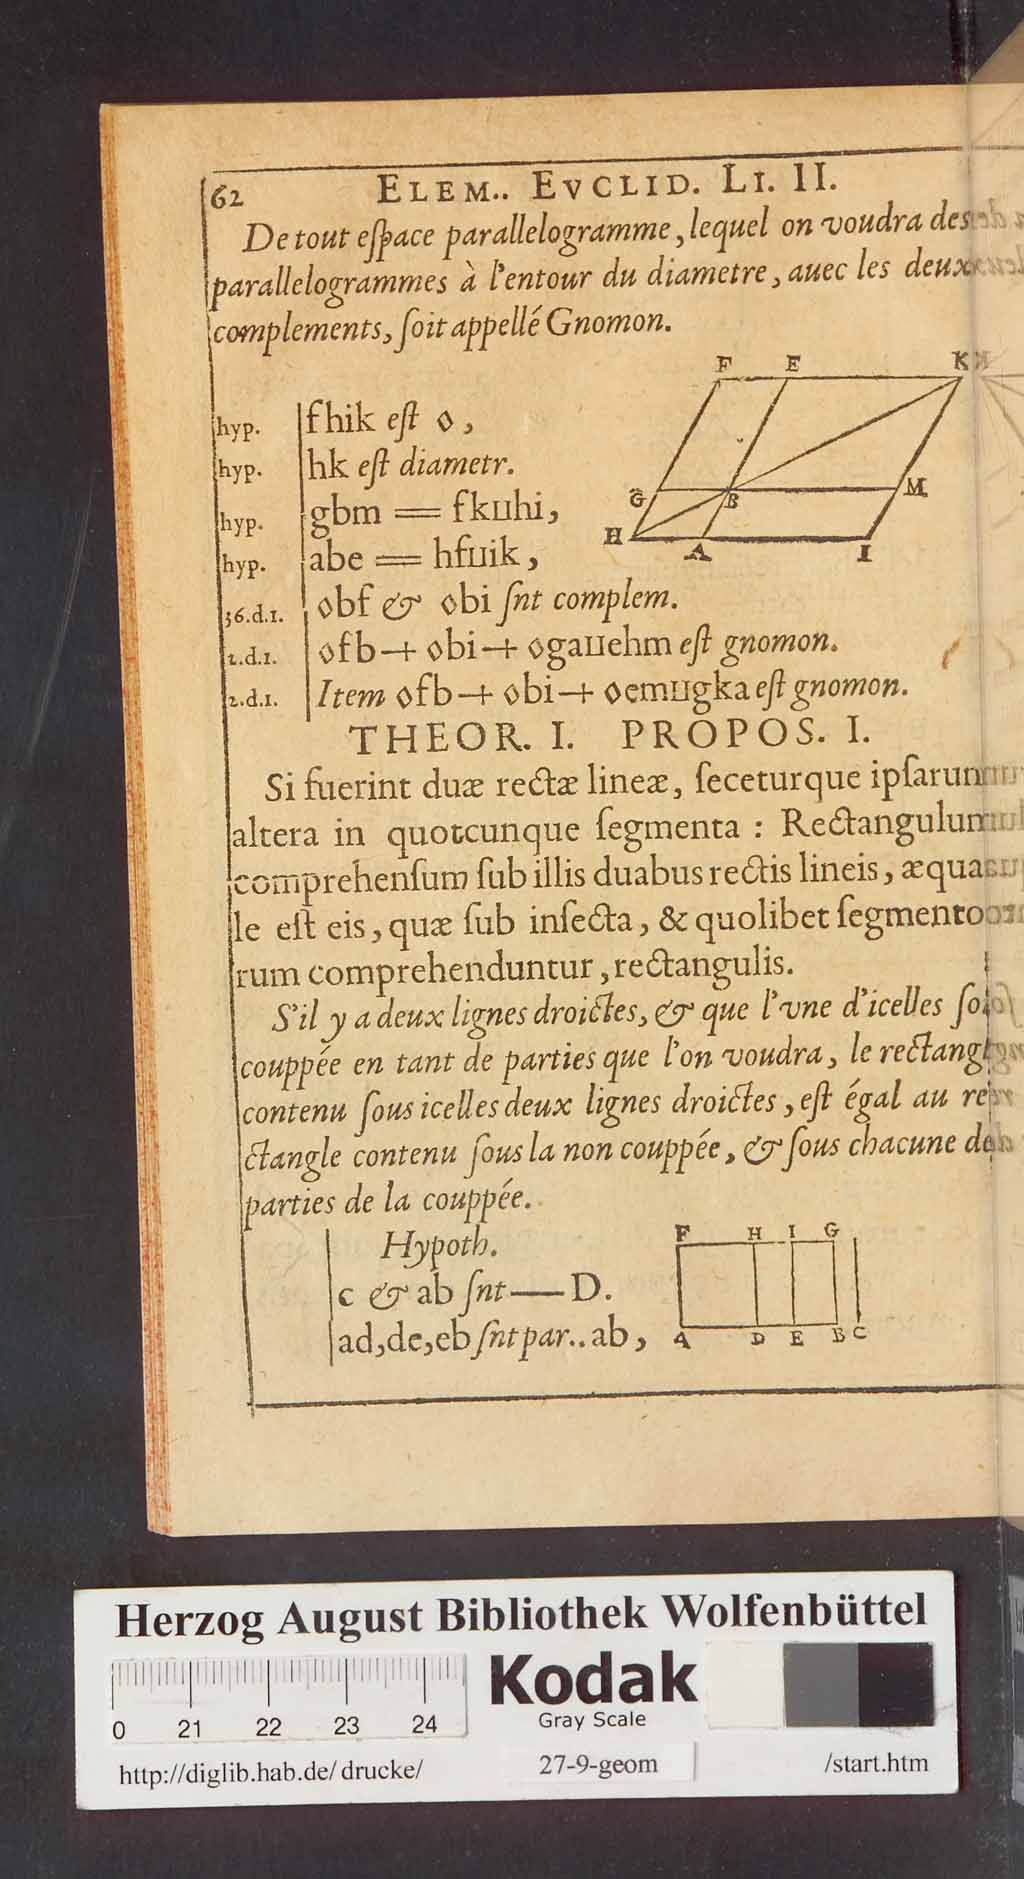 62 ELEM.. EVCLID. LI. II.
De tout eſpace parallelogramme, lequel on voudra des
parallelogrammes à l'entour du diametre, auec les deux
complements, ſoit appellé Gnomon.
F E K
G B M
H A I
hyp. fhik eſt ◊,
hyp. hk eſt diametr.
hyp. gbm = fkuhi,
hyp. abe = hfuik,
36.d.1. ◊bf & ◊bi ſnt complem.
2.d.1. ◊fb+ ◊bi+ ◊gauehm eſt gnomon.
2.d.1. Item ◊fb+ ◊bi+ ◊emugka eſt gnomon.
THEOR. I. PROPOS. I.
Si fuerint duæ rectæ lineæ, ſeceturque ipſarum
altera in quotcunque ſegmenta : Rectangulum
comprehenſum ſub illis duabus rectis lineis, æqua
le eſt eis, quæ ſub inſecta, & quolibet ſegmento
rum comprehenduntur, rectangulis.
S'il y a deux lignes droictes, & que l'vne d'icelles ſoi
couppée en tant de parties que l'on voudra, le rectangl
contenu ſous icelles deux lignes droictes, eſt égal au re
ctangle contenu ſous la non couppée, & ſous chacune de
parties de la couppée.
Hypoth.
c & ab ſnt — D.
ad, de, eb ſnt par.. ab,
F H I G
A D E B C
Herzog August Bibliothek Wolfenbüttel
Kodak
Gray Scale
0 21 22 23 24
http://diglib.hab.de/drucke/ 27-9-geom /start.htm